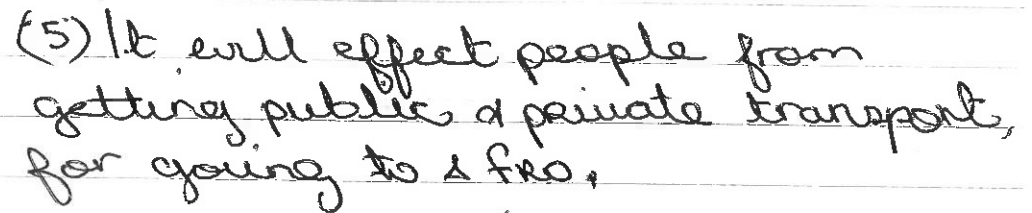 (5) It will effect people from
getting public & private transport,
for going to & fro.